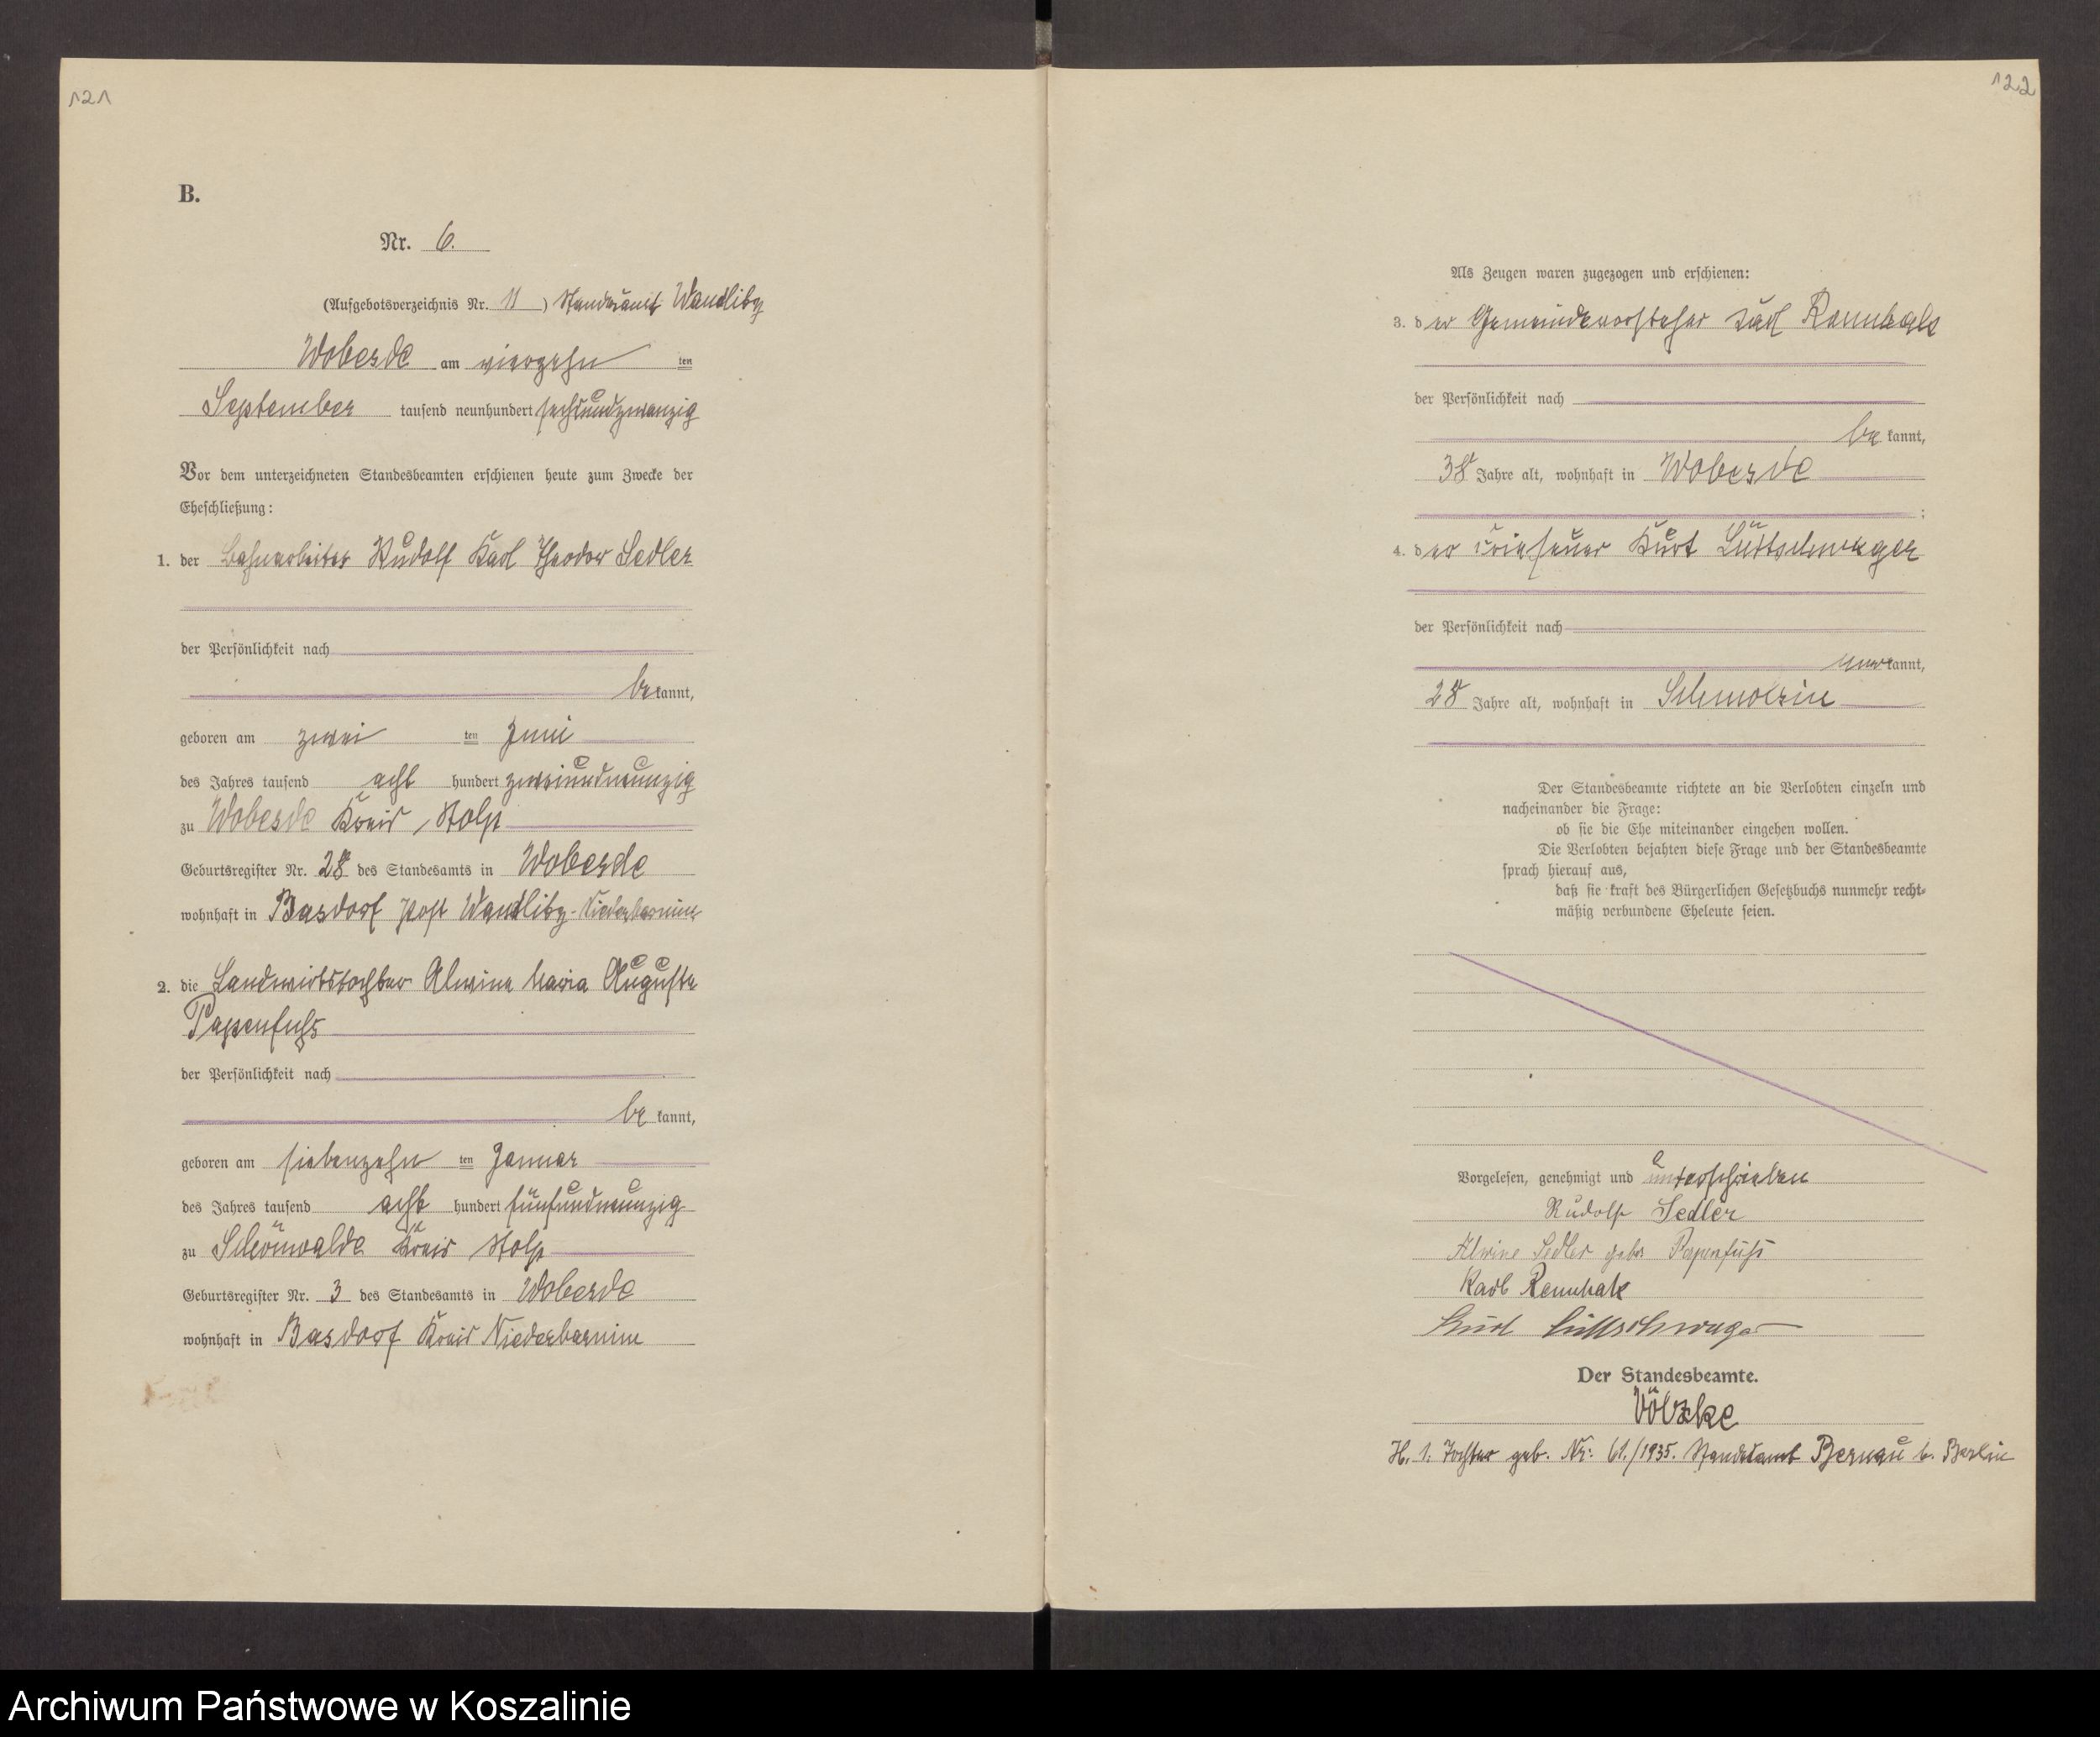 121
B.
Nr. 6.
(Aufgebotsverzeichnis Nr. 11) Standesamt Wandlitz
Wobesde am vierzehn ten
September tausend neunhundert sechsundzwanzig
Vor dem unterzeichneten Standesbeamten erschienen heute zum Zwecke der
Eheschließung:
1. der Bahnarbeiter Rudolf Karl Theodor Sedler
der Persönlichkeit nach
be kannt,
geboren am zwei ten Juni
des Jahres tausend acht hundert zweiundneunzig
zu Wobesde Kreis Stolp
Geburtsregister Nr. 28 des Standesamts in Wobesde
wohnhaft in Basdorf Post Wandlitz-Niederbarnim
2. die Landwirtstochter Alwine Maria Auguste
Papenfuhs
der Persönlichkeit nach
be kannt,
geboren am siebenzehn ten Januar
des Jahres tausend acht hundert fünfundneunzig
zu Schönwalde Kreis Stolp
Geburtsregister Nr. 3 des Standesamts in Wobesde
wohnhaft in Basdorf Kreis Niederbarnim
122
Als Zeugen waren zugezogen und erschienen:
3. der Gemeindevorsteher Karl
der Persönlichkeit nach
be kannt,
38 Jahre alt, wohnhaft in Wobesde
;
4. der Kurt Lüttschwager
der Persönlichkeit nach
kannt,
28 Jahre alt, wohnhaft in Schmolsin
Der Standesbeamte richtete an die Verlobten einzeln und
nacheinander die Frage:
ob sie die Ehe miteinander eingehen wollen.
Die Verlobten bejahten diese Frage und der Standesbeamte
sprach hierauf aus,
daß sie kraft des Bürgerlichen Gesetzbuchs nunmehr recht-
mäßig verbundene Eheleute seien.
Vorgelesen, genehmigt und unterschrieben
Rudolf Sedler
Alwine Sedler geb. Papenfuhs
Karl
Kurt Lüttschwager
Der Standesbeamte.
Völzke
H. 1. Tochter geb. Nr: 61./1935. Standesamt Bernau b. Berlin
Archiwum Państwowe w Koszalinie